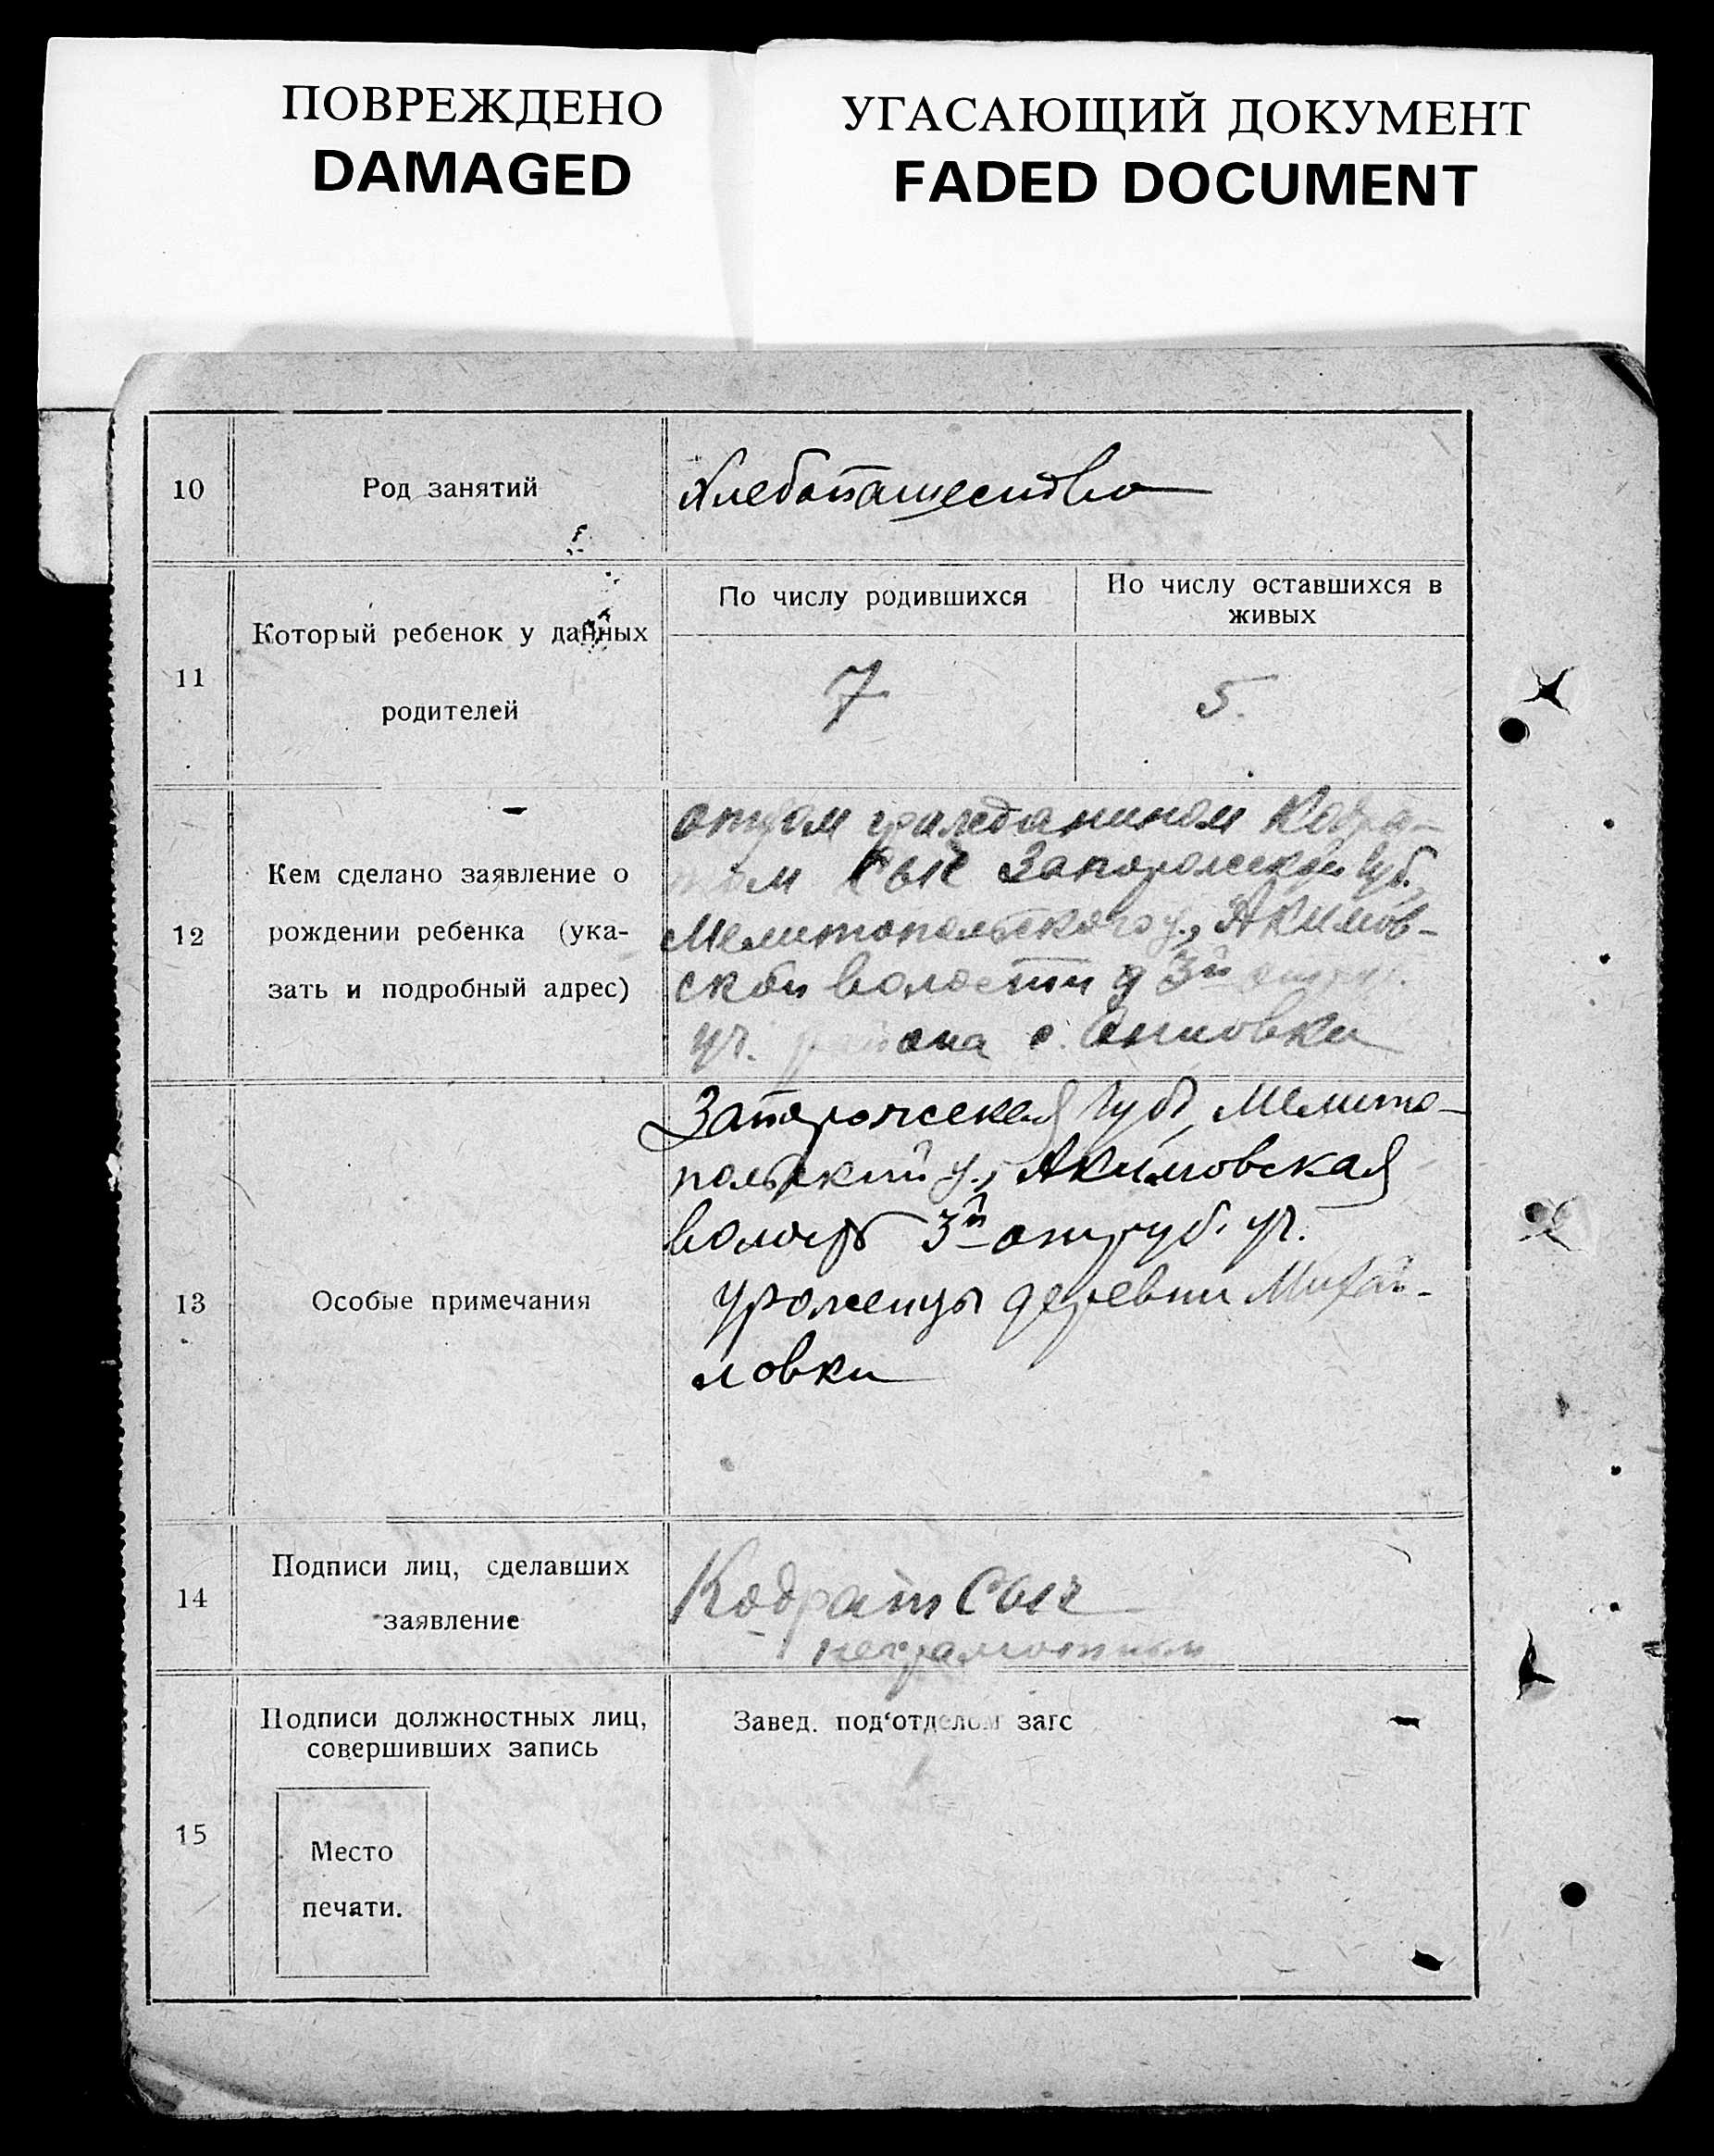 ПОВРЕЖДЕНО
DAMAGED
УГАСАЮЩИЙ ДОКУМЕНТ
FADED DOCUMENT
10
Род занятий
Хлебопашество
11
Который ребенок у данных
родителей
По числу родившихся
По числу оставшихся в
живых
7
5.
12
Кем сделано заявление о
рождении ребенка (ука-
зать и подробный адрес)
отцом гражданином Кодра-
том Сыч Запорожской губ.,
Мелитопольского у., Акимов-
ской волости 3й
уч. района с.
13
Особые примечания
Запорожская губ, Мелито-
польский у., Акимовская
волость 3й отруб. уч.
Уроженцы деревни Михай-
ловки
14
Подписи лиц, сделавших
заявление
Кодрат Сыч
неграмотный
15
Подписи должностных лиц,
совершивших запись
Завед. под'отделом загс
Место
печати.